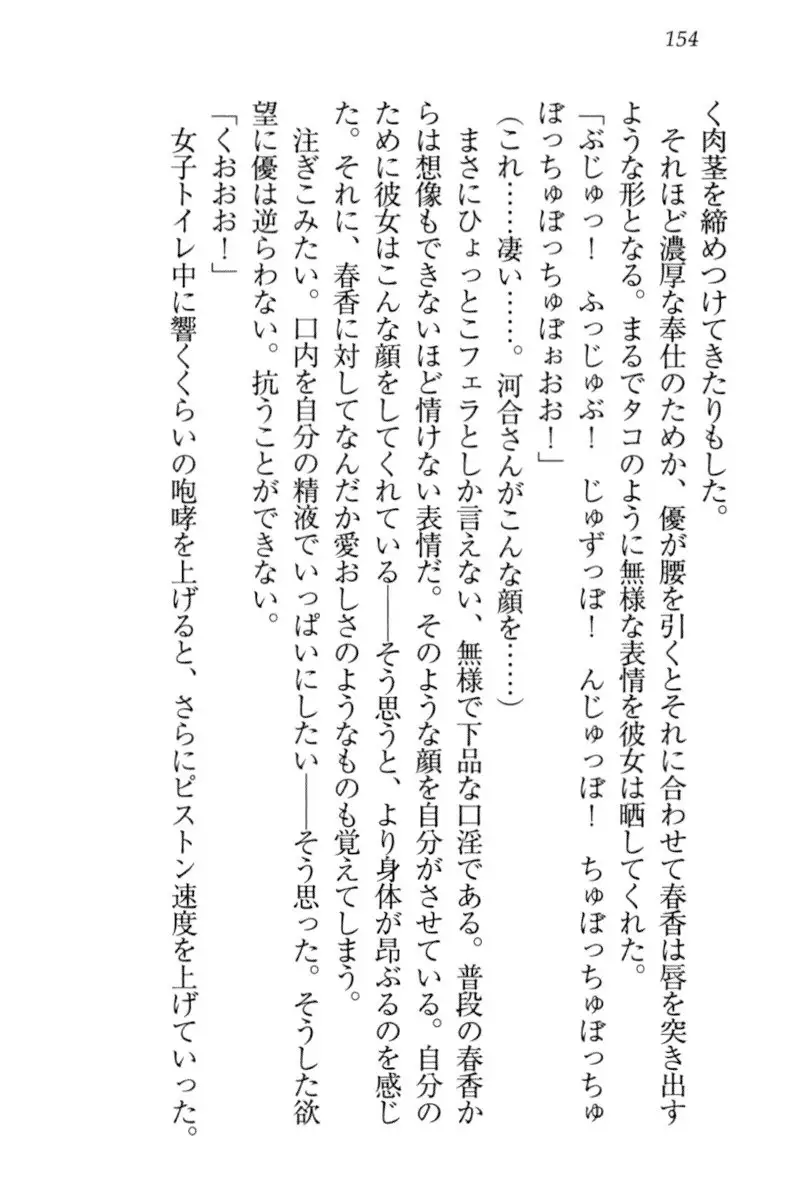 154
く肉茎を締めつけてきたりもした。
それほど濃厚な奉仕のためか、優が腰を引くとそれに合わせて春香は唇を突き出す
ような形となる。まるでタコのように無様な表情を彼女は晒してくれた。
「ぶじゅっ！　ふっじゅぶ！　じゅずっぽ！　んじゅっぽ！　ちゅぽっちゅぽっちゅ
ぽっちゅぽっちゅぽぉおお！」
（これ……凄い……。河合さんがこんな顔を……）
まさにひょっとこフェラとしか言えない、無様で下品な口淫である。普段の春香か
らは想像もできないほど情けない表情だ。そのような顔を自分がさせている。自分の
ために彼女はこんな顔をしてくれている――そう思うと、より身体が昂ぶるのを感じ
た。それに、春香に対してなんだか愛おしさのようなものも覚えてしまう。
注ぎこみたい。口内を自分の精液でいっぱいにしたい――そう思った。そうした欲
望に優は逆らわない。抗うことができない。
「くおおお！」
女子トイレ中に響くくらいの咆哮を上げると、さらにピストン速度を上げていった。